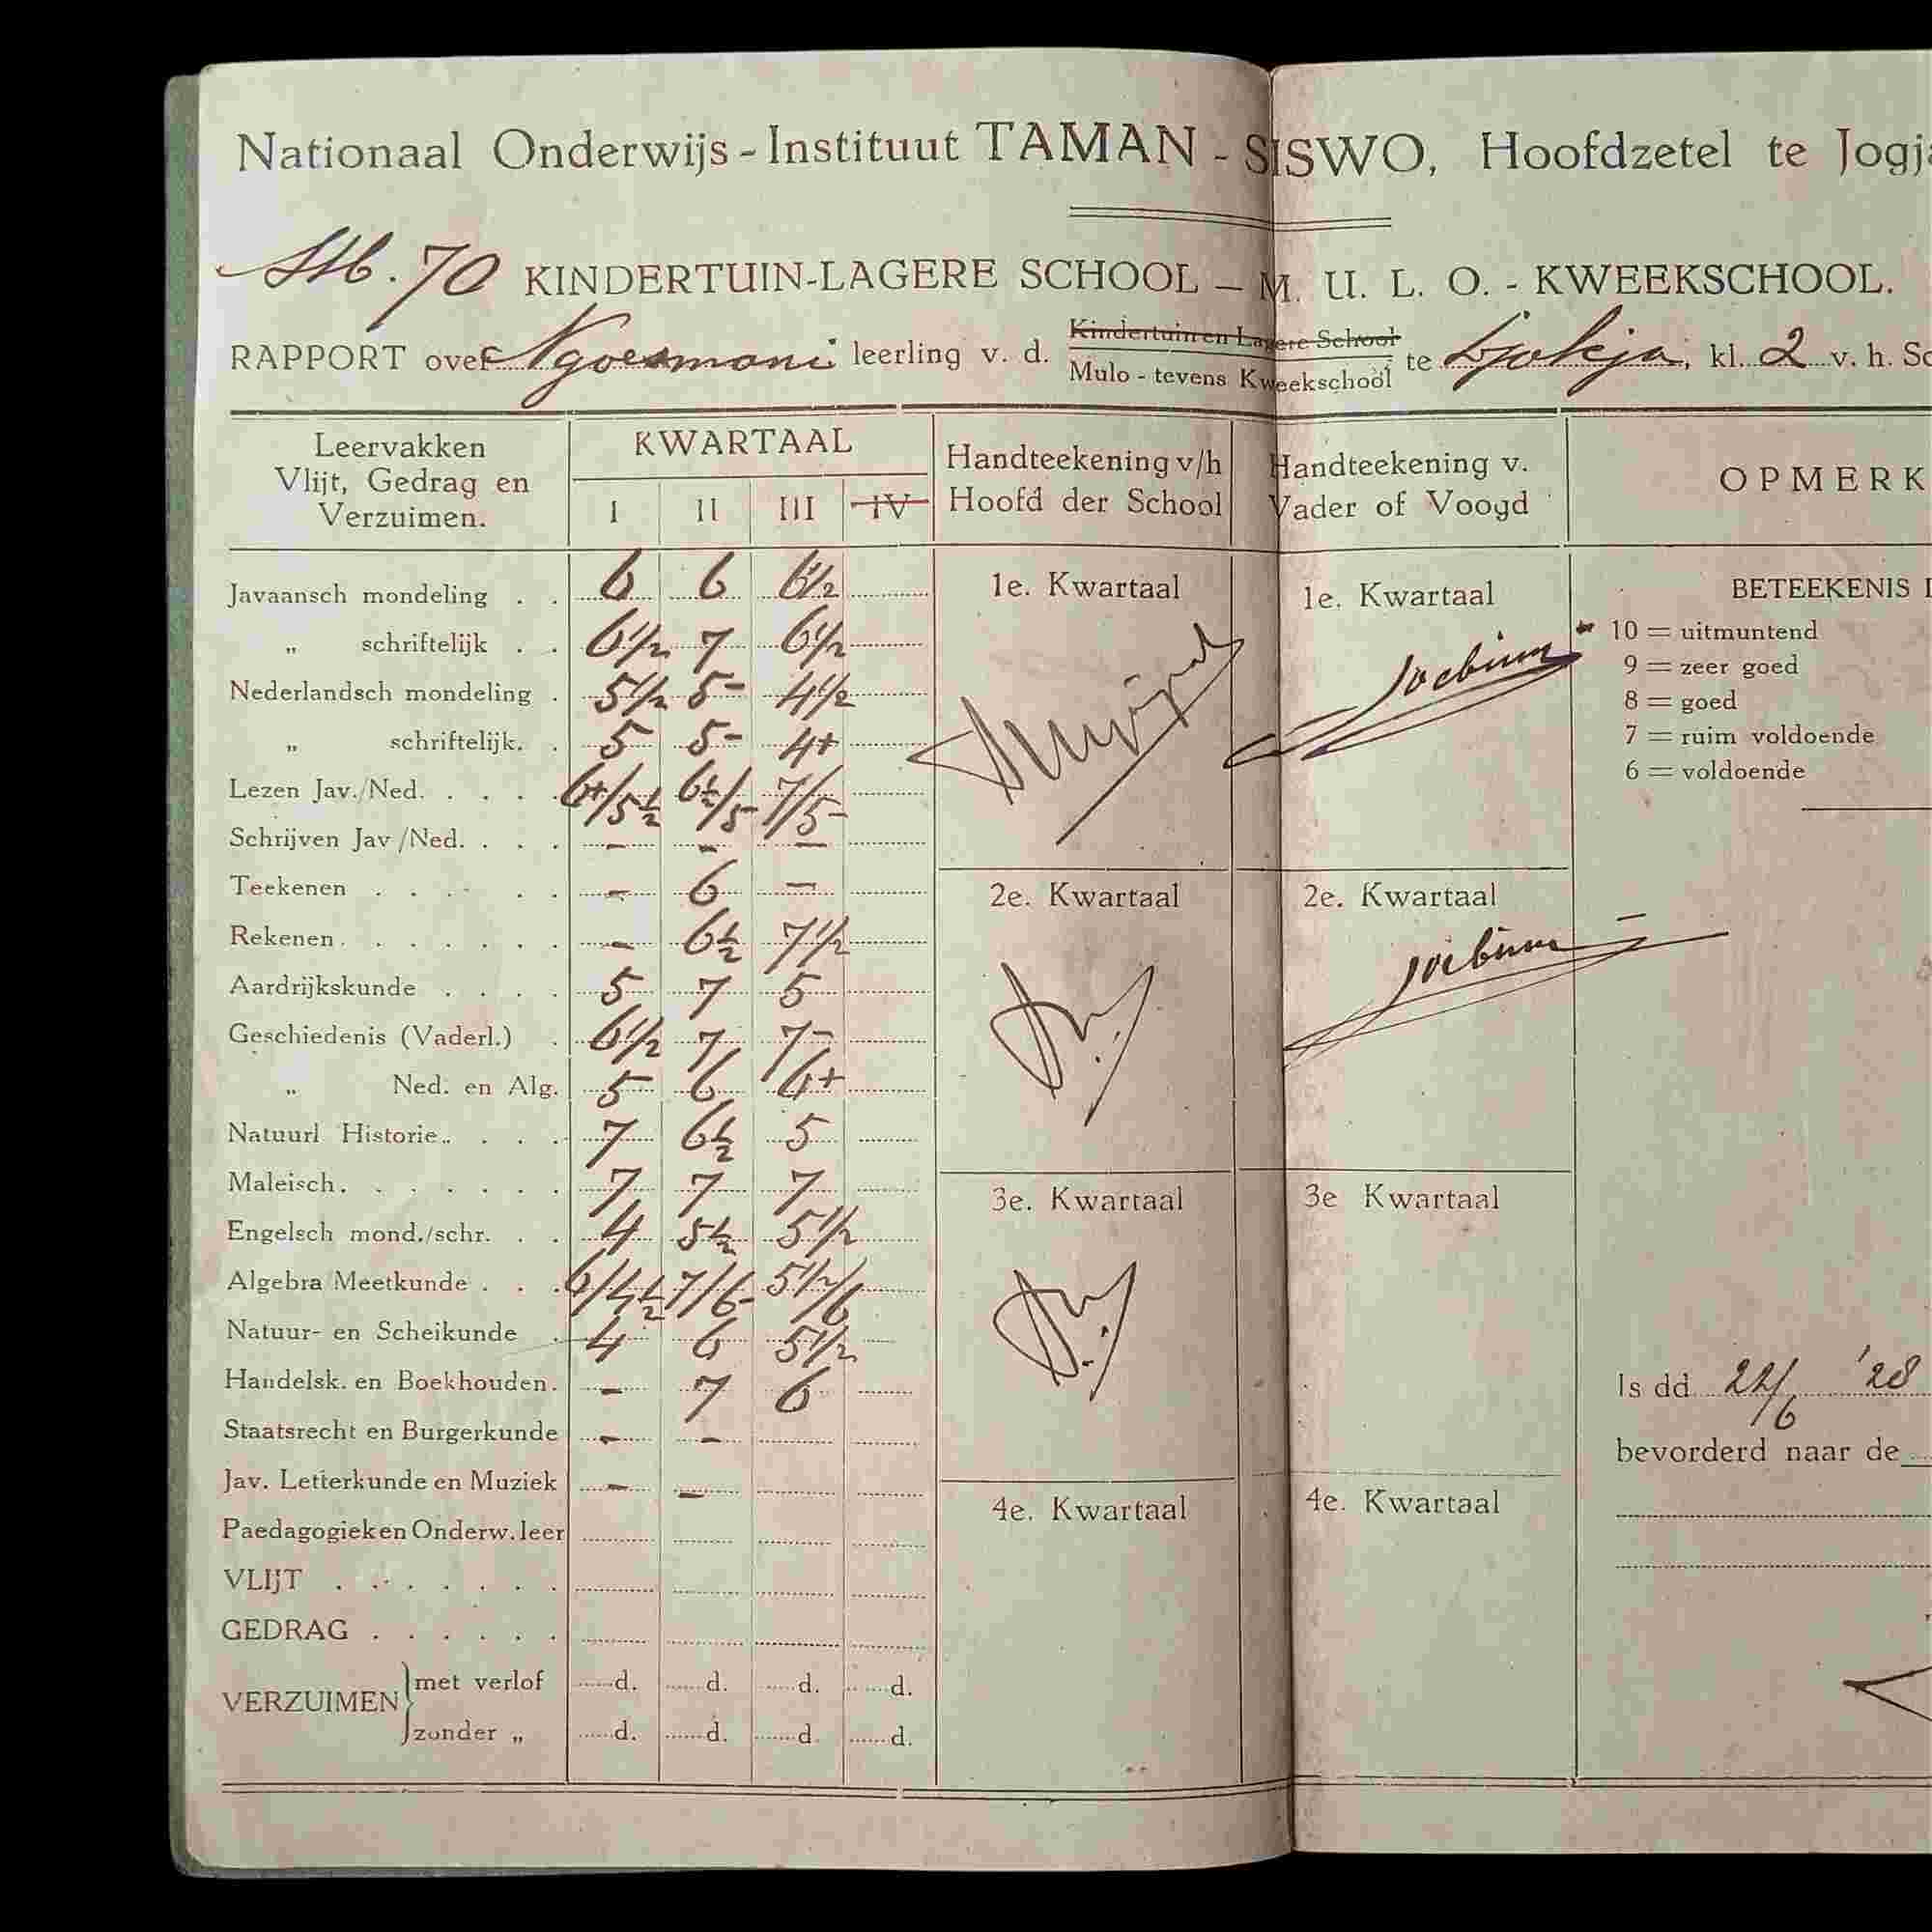 Nationaal Onderwijs-Instituut TAMAN-SISWO, Hoofdzetel te Jogja
Stb. 70 KINDERTUIN-LAGERE SCHOOL — M. U. L. O. - KWEEKSCHOOL.
Kindertuin en Lagere School
RAPPORT over Ngoesmani leerling v. d. te Djokja, kl. 2 v. h. Sc
Mulo - tevens Kweekschool
Leervakken Vlijt, Gedrag en Verzuimen.
KWARTAAL
I II III IV
Handteekening v/h Hoofd der School
Handteekening v. Vader of Voogd
OPMERK
Javaansch mondeling . . 6 6 6 1/2
„ schriftelijk . . 6 1/2 7 6 1/2
Nederlandsch mondeling . 5 1/2 5- 4 1/2
„ schriftelijk. . 5 5- 4+
Lezen Jav./Ned. . . . . 6+/5 1/2 6 1/2/5- 7/5-
Schrijven Jav /Ned. . . . - - -
Teekenen . . . . . - 6 -
Rekenen . . . . . . - 6 1/2 7 1/2
Aardrijkskunde . . . . 5 7 5
Geschiedenis (Vaderl.) . 6 1/2 7 7-
„ Ned. en Alg. 5 6 6+
Natuurl Historie . . . . 7 6 1/2 5
Maleisch . . . . . . 7 7 7
Engelsch mond./schr. . . 4 5 1/2 5 1/2
Algebra Meetkunde . . . 6/4 1/2 7/6- 5 1/2/6
Natuur- en Scheikunde . 4 6 5 1/2
Handelsk. en Boekhouden. - 7 6
Staatsrecht en Burgerkunde - -
Jav. Letterkunde en Muziek - -
Paedagogiek en Onderw. leer
VLIJT . . . . . . .
GEDRAG . . . . . .
VERZUIMEN
met verlof d. d. d. d.
zonder „ d. d. d. d.
1e. Kwartaal
2e. Kwartaal
3e. Kwartaal
4e. Kwartaal
1e. Kwartaal
2e. Kwartaal
3e Kwartaal
4e. Kwartaal
BETEEKENIS
10 = uitmuntend
9 = zeer goed
8 = goed
7 = ruim voldoende
6 = voldoende
Is dd 22/6 '28
bevorderd naar de